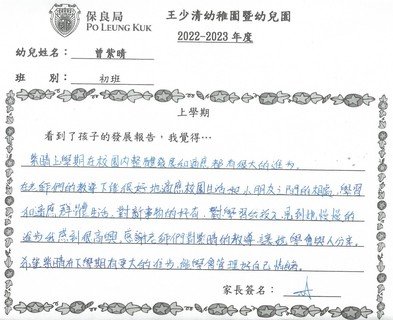 保良局
PO LEUNG KUK
王少清幼稚園暨幼兒園
2022-2023 年度
幼兒姓名： 曾紫晴
班 別： 初班
上學期
看到了孩子的發展報告，我覺得…
紫晴上學期在校園內整體發展和適應都有很大的進步。
在老師們的教導下能很好地適應校園生活和小朋友之間的相處，學習
和適應群體生活，對新事物的
進步我感到很高興，感謝老師們對紫晴的教導，讓她學會與人分享，
希望紫晴在下學期有更大的進步，能學會管理好自己情緒。
家長簽名：